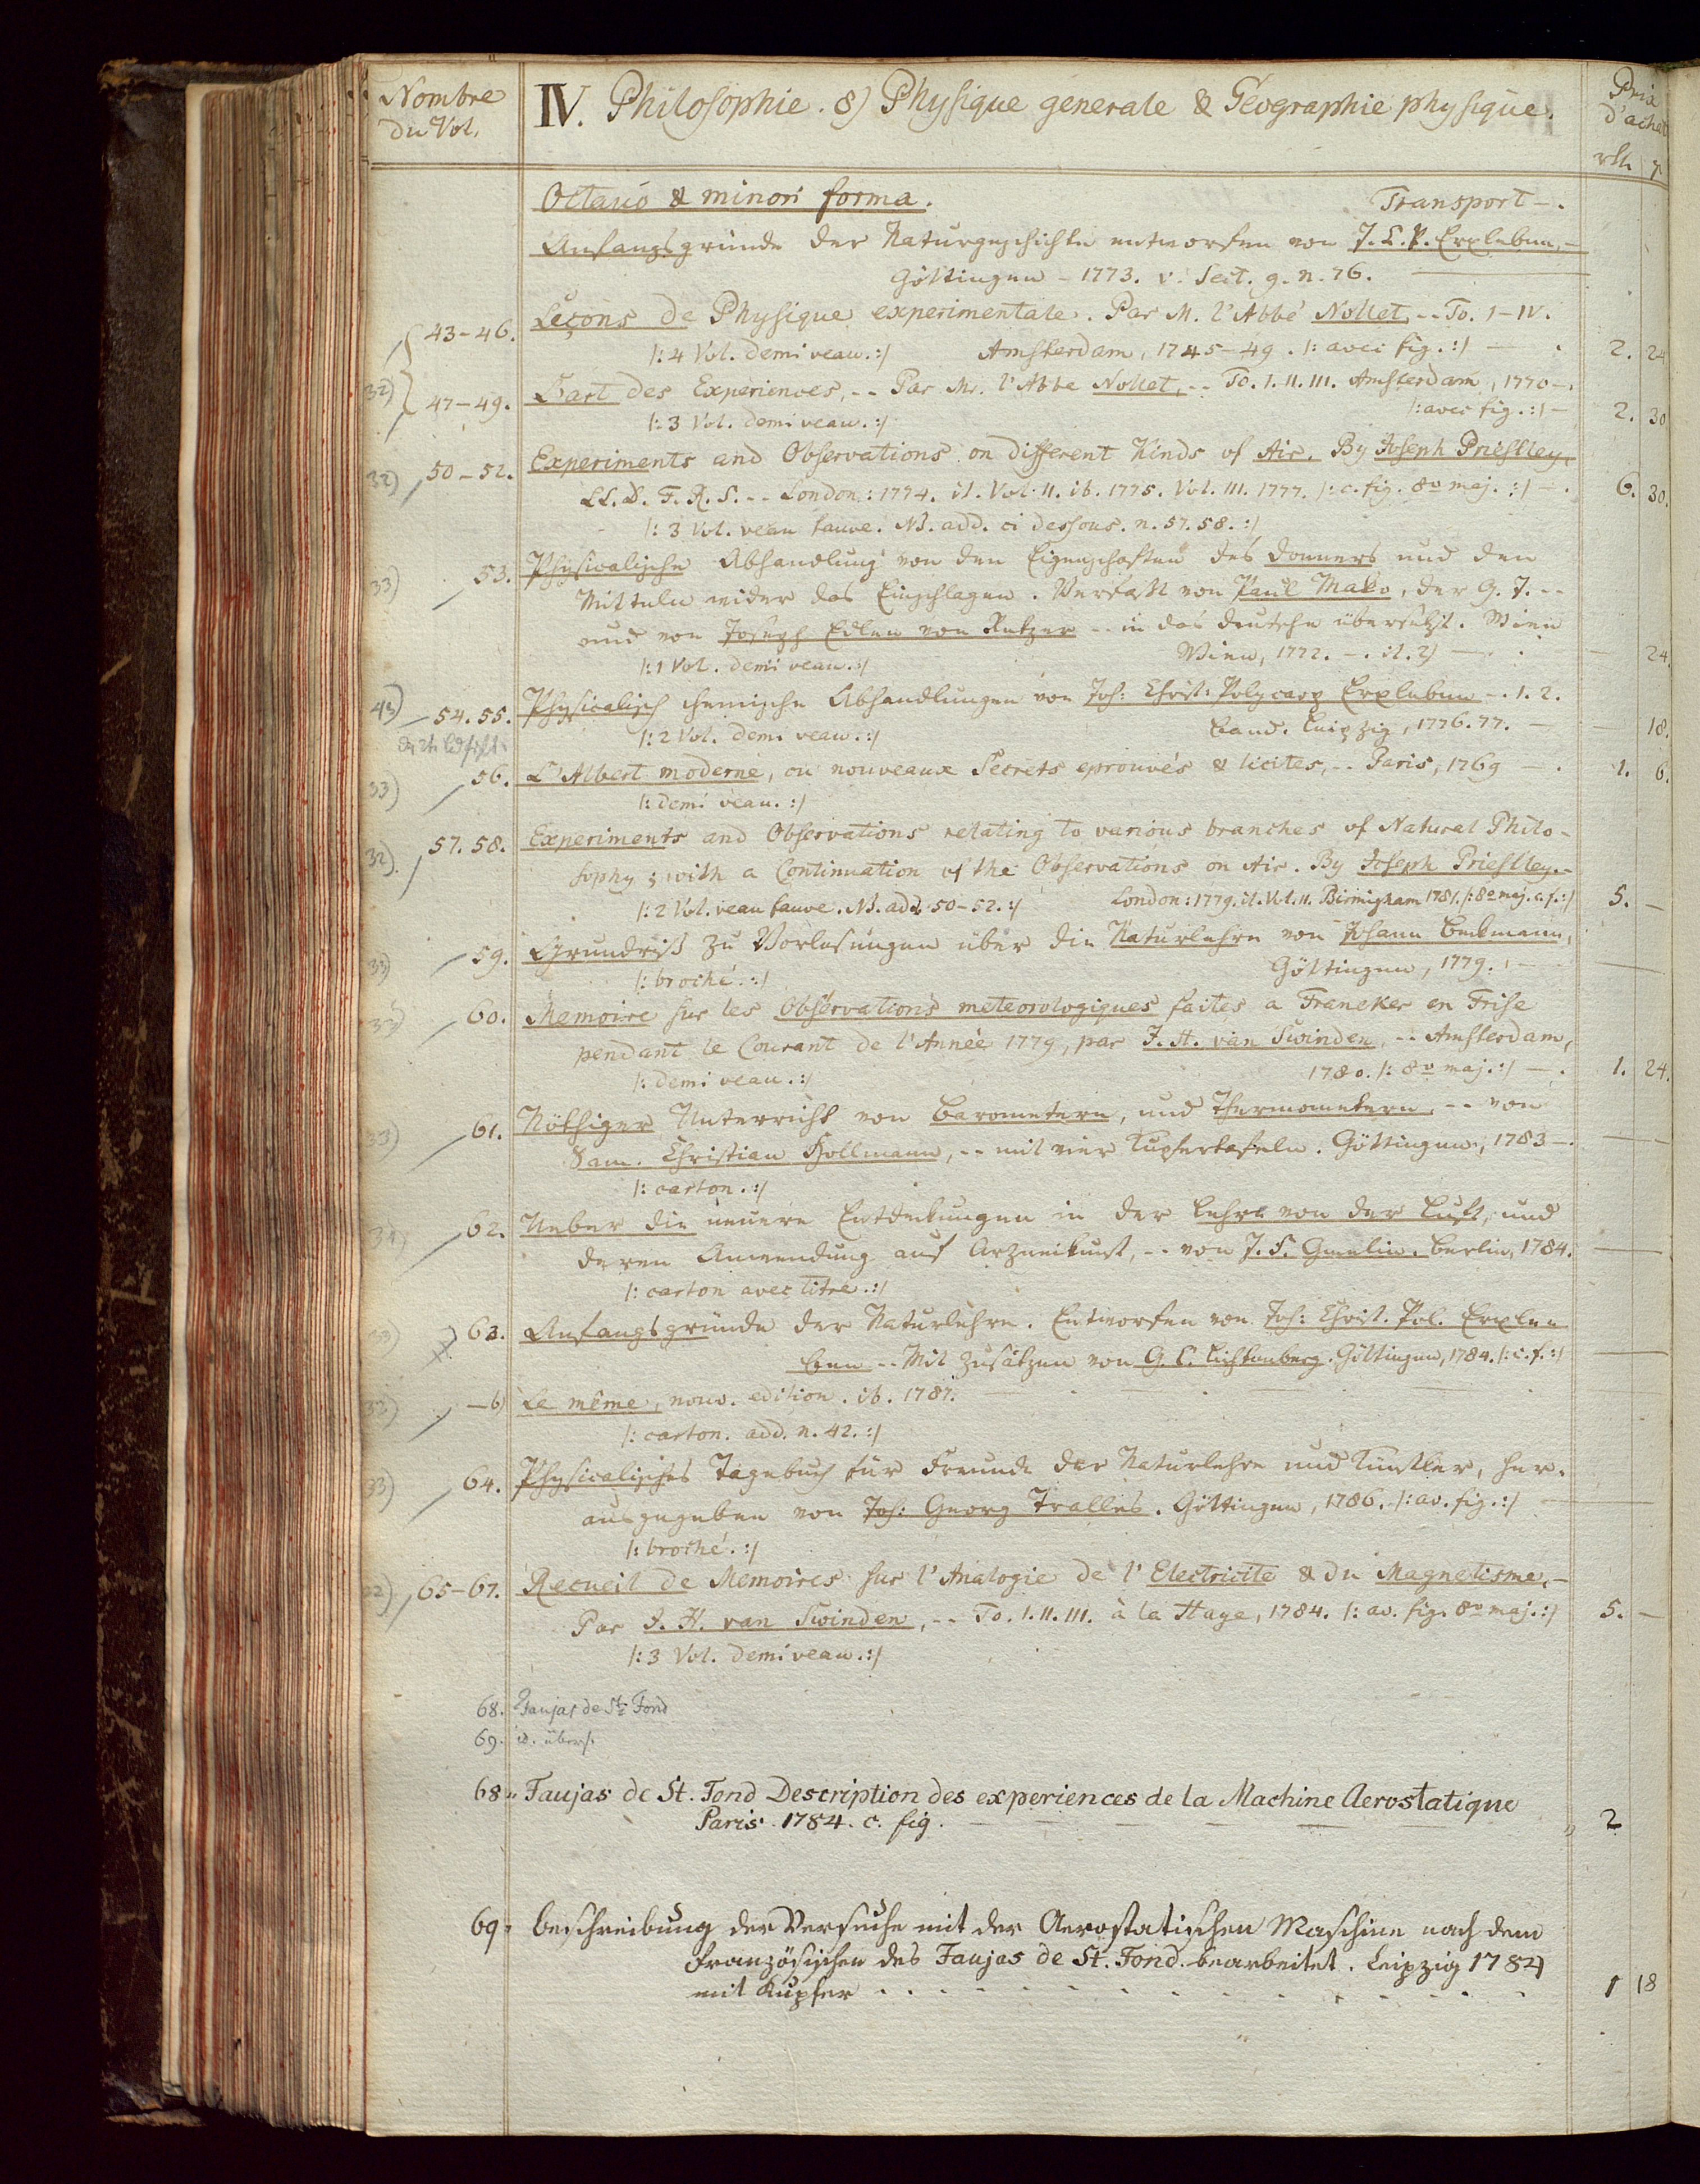 Nombre
du Vol.
IV. Philosophie. 8) Physique generale & Géographie physique.
Prix
d'achat
rth
Octavo & minori forma. Transport -.
Anfangsgründe der Naturgeschichte entworfen von J. C. P. Erxleben, -
Göttingen - 1773. v. Sect. 9. n. 76.
43-46. Leçons de Physique experimentale. Par M. l'Abbé Nollet, -- To. I-IV.
/: 4 Vol. demi veau. :/ Amsterdam, 1745-49. /: avec fig. :/ - 2. 24
32) 47-49. L'art des Experiences, -- Par Mr. l'Abbé Nollet, -- To. I. II. III. Amsterdam, 1770 -.
/: 3 Vol. demi veau. :/ /: avec fig. :/ - 2. 30
32) 50-52. Experiments and Observations on different Kinds of Air. By Joseph Priestley,
LL. D. F. R. S. -- London: 1774. it. Vol. II. ib. 1775. Vol. III. 1777. /: c. fig. 8vo maj. :/ -. 6. 30.
/: 3 Vol. veau fauve. NB. add. ci dessous. n. 57. 58. :/
33) 53. Physicalische Abhandlung von den Eigenschaften des Donners und den
Mitteln wider das Einschlagen. Verfaßt von Paul Mako, der G. J. --
und von Joseph Edlen von Retzer -- in das deutsche übersetzt. Wien
/: 1 Vol. demi veau. :/ Wien, 1772. -. it. 2) - 24.
43) 54. 55. Physicalisch chemische Abhandlungen von Joh: Christ: Polycarp Erxleben -. 1. 2.
/: 2 Vol. demi veau. :/ Band. Leipzig, 1776. 77. - 18.
33) 56. L'Albert moderne, ou nouveaux Secrets eprouvés & licites, -- Paris, 1769 -. 1. 6.
/: demi veau. :/
32). 57. 58. Experiments and Observations relating to various branches of Natural Philo-
sophy; with a Continuation of the Observations on Air. By Joseph Priestley. -
/: 2 Vol. veau fauve. NB. add. 50-52. :/ London: 1779. it. Vol. II. Birmigham 1781. /: 8o maj. c. f. :/ 5. -
33) 59. Grundriß zu Vorlesungen über die Naturlehre von Johann Beckmann,
/: broché. :/ Göttingen, 1779.
33) 60. Memoire sur les Observations meteorologiques faites a Franeker en Frise
pendant le Courant de l'Année 1779, par J. H. van Swinden, -- Amsterdam,
/: demi veau. :/ 1780. /: 8vo maj. :/ -. 1. 24.
33) 61. Nöthiger Unterricht von Barometern, und Thermometern, -- von
Sam. Christian Hollmann, -- mit vier Kupfertafeln. Göttingen, 1783 -.
/: carton. :/
34) 62. Ueber die neuere Entdekungen in der Lehre von der Luft, und
deren Anwendung auf Arzneikunst, -- von J. F. Gmelin. Berlin, 1784.
/: carton avec titre. :/
33) 63. Anfangsgründe der Naturlehre. Entworfen von Joh: Christ. Pol. Erxle-
ben -- Mit Zusätzen von G. C. Lichtenberg. Göttingen, 1784. /: c. f. :/
32) -b) Le même, nouv. edition. ib. 1787.
/: carton. add. n. 42. :/
33) 64. Physicalisches Tagebuch für Freunde der Naturlehre und Künstler, her-
ausgegeben von Joh: Georg Tralles. Göttingen, 1786. /: av. fig. :/
/: broché. :/
32) 65-67. Recueil de Memoires sur l'Analogie de l'Electricité & du Magnetisme, -
Par J. H. van Swinden, -- To. I. II. III. à la Haye, 1784. /: av. fig. 8vo maj. :/ 5. -
/: 3 Vol. demi veau. :/
68. Faujas de St. Fond
69. id. übers.
68. Faujas de St. Fond Description des experiences de la Machine Aerostatique
Paris. 1784. c. fig. - - - - 2
69. Beschreibung der Versuche mit der Aerostatischen Maschine nach dem
französischen des Faujas de St. Fond. bearbeitet. Leipzig 1784
mit Kupfer . . . . . . 1 18